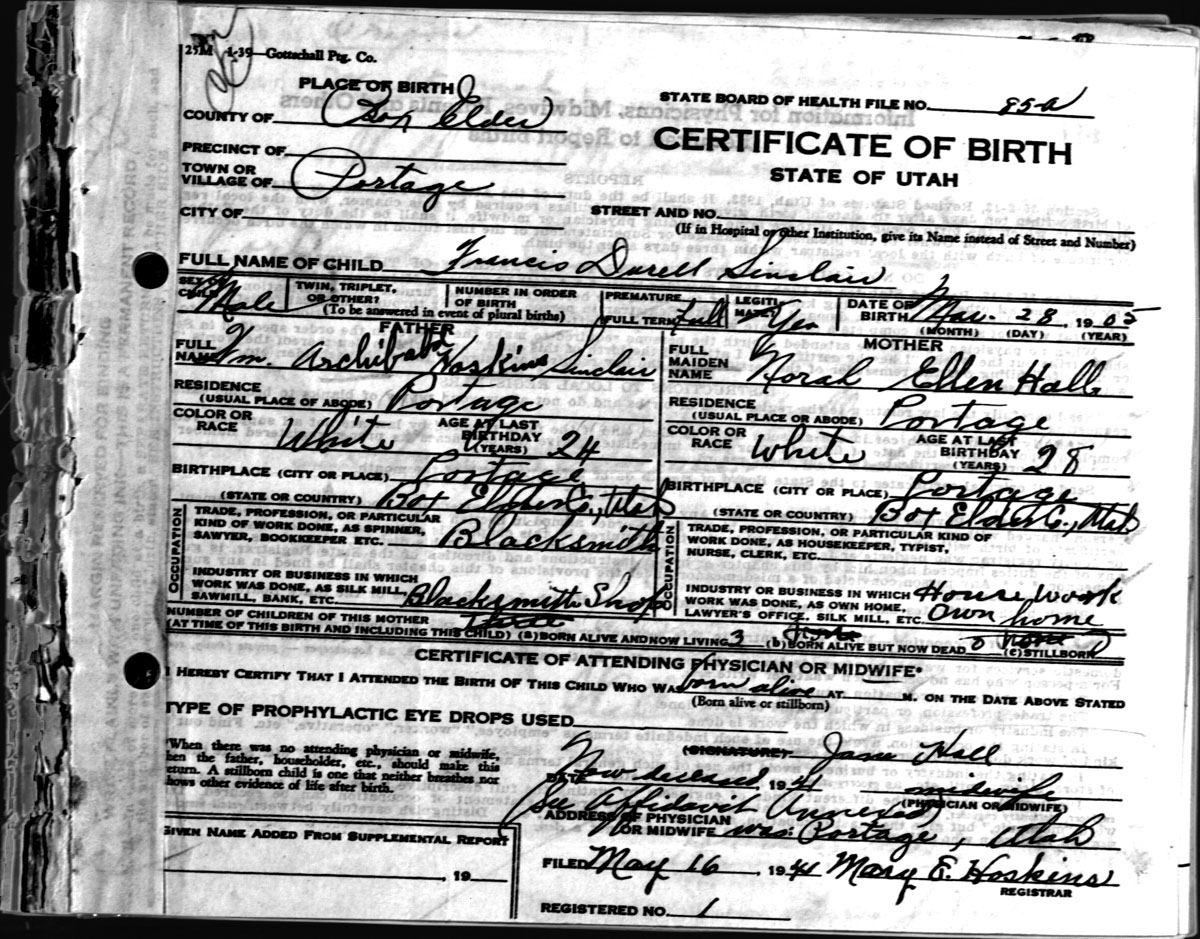 25M 1-39—Gottschall Ptg. Co.
PLACE OF BIRTH
COUNTY OF Box Elder
STATE BOARD OF HEALTH FILE NO. 85-A
CERTIFICATE OF BIRTH
STATE OF UTAH
PRECINCT OF
TOWN OR VILLAGE OF Portage
CITY OF
STREET AND NO.
(If in Hospital or other Institution, give its Name instead of Street and Number)
FULL NAME OF CHILD Francis Durell Sinclair
SEX OF CHILD Male
TWIN, TRIPLET, OR OTHER?
NUMBER IN ORDER OF BIRTH
(To be answered in event of plural births)
PREMATURE
FULL TERM Full
LEGITIMATE? Yes
DATE OF BIRTH 28, 1905
(MONTH) (DAY) (YEAR)
FATHER
FULL NAME Wm. Archibald Hoskins Sinclair
RESIDENCE (USUAL PLACE OF ABODE) Portage
COLOR OR RACE White
AGE AT LAST BIRTHDAY (YEARS) 24
BIRTHPLACE (CITY OR PLACE) Portage
(STATE OR COUNTRY) Box Elder Co., Utah
OCCUPATION
TRADE, PROFESSION, OR PARTICULAR KIND OF WORK DONE, AS SPINNER, SAWYER, BOOKKEEPER ETC. Blacksmith
INDUSTRY OR BUSINESS IN WHICH WORK WAS DONE, AS SILK MILL, SAWMILL, BANK, ETC. Blacksmith Shop
MOTHER
FULL MAIDEN NAME Norah Ellen Hall
RESIDENCE (USUAL PLACE OR ABODE) Portage
COLOR OR RACE White
AGE AT LAST BIRTHDAY (YEARS) 28
BIRTHPLACE (CITY OR PLACE) Portage
(STATE OR COUNTRY) Box Elder Co., Utah
OCCUPATION
TRADE, PROFESSION, OR PARTICULAR KIND OF WORK DONE, AS HOUSEKEEPER, TYPIST, NURSE, CLERK, ETC.
INDUSTRY OR BUSINESS IN WHICH WORK WAS DONE, AS OWN HOME, LAWYER'S OFFICE, SILK MILL, ETC. House work own home
NUMBER OF CHILDREN OF THIS MOTHER
(AT TIME OF THIS BIRTH AND INCLUDING THIS CHILD) (a) BORN ALIVE AND NOW LIVING 3 (b) BORN ALIVE BUT NOW DEAD 0 (c) STILLBORN 0
CERTIFICATE OF ATTENDING PHYSICIAN OR MIDWIFE*
I HEREBY CERTIFY THAT I ATTENDED THE BIRTH OF THIS CHILD WHO WAS born alive AT M. ON THE DATE ABOVE STATED
(Born alive or stillborn)
TYPE OF PROPHYLACTIC EYE DROPS USED
When there was no attending physician or midwife,
hen the father, householder, etc., should make this
eturn. A stillborn child is one that neither breathes nor
hows other evidence of life after birth.
(SIGNATURE) Jane Hall
Now deceased, 1941 midwife
DATE
(PHYSICIAN OR MIDWIFE)
See Affidavit Annexed
ADDRESS OF PHYSICIAN OR MIDWIFE was: Portage, Utah
GIVEN NAME ADDED FROM SUPPLEMENTAL REPORT
, 19
FILED May 16, 1941 Mary E. Hoskins
REGISTRAR
REGISTERED NO. 1